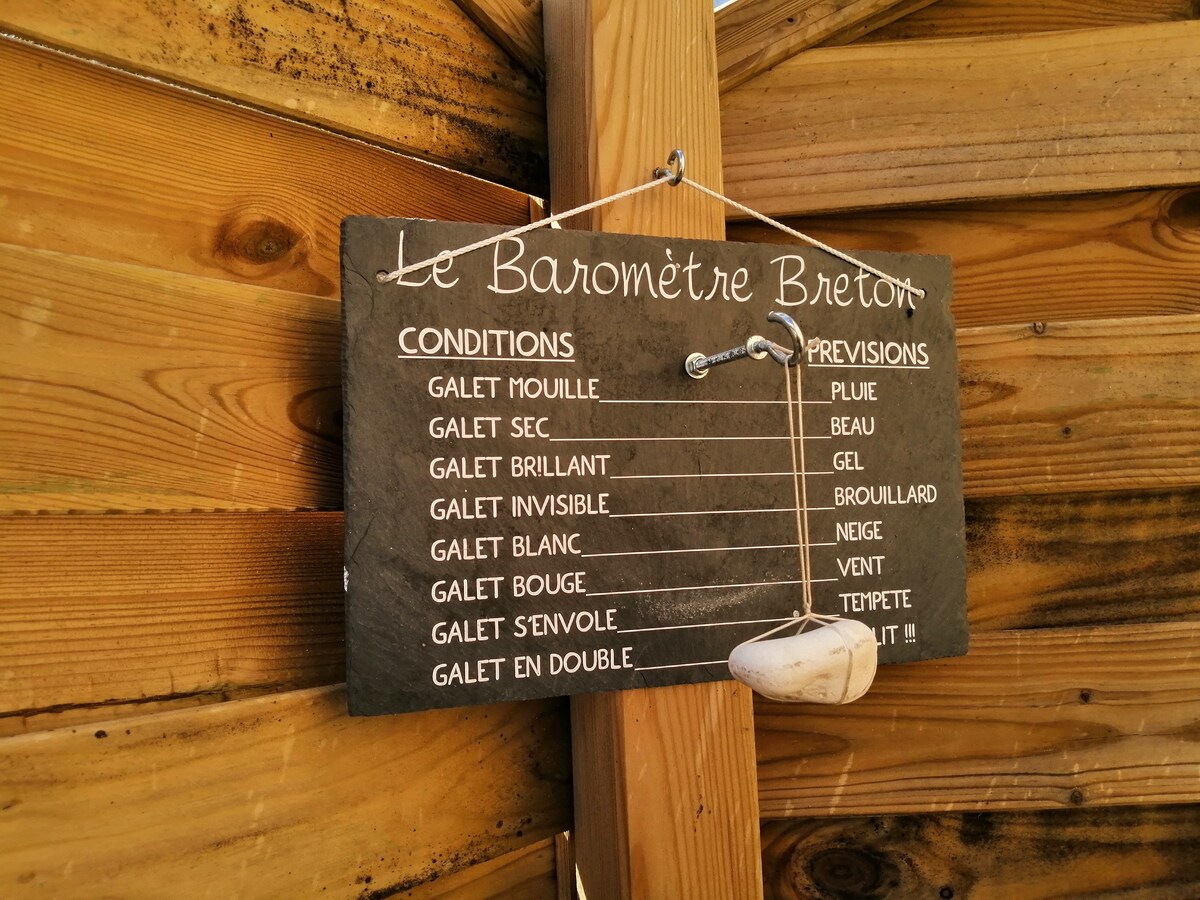 Le Baromètre Breton
CONDITIONS PREVISIONS
GALET MOUILLE PLUIE
GALET SEC BEAU
GALET BRILLANT GEL
GALET INVISIBLE BROUILLARD
GALET BLANC NEIGE
GALET BOUGE VENT
GALET S'ENVOLE TEMPETE
GALET EN DOUBLE LIT !!!